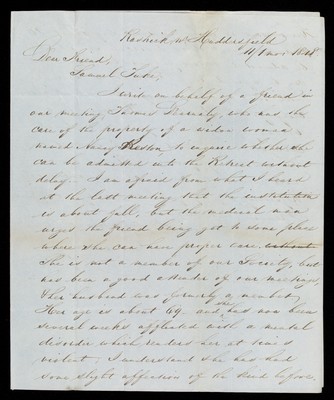 Rastrick nr Huddersfield
Dear Friend,
Samuel Tuke,
I write on behalf of a friend in
our meeting, who has the
care of the property of a widow woman
named Nancy to enquire whether she
can be admitted into the Retreat without
delay. I am afraid from what I heard
at the last meeting that the institution
is about full, but the medical man
urges the friend being got to some place
where she can have proper care.
She is not a member of our Society, but
has been a good attender of our meetings,
& her husband was formerly a member.
Her age is about 69, and has now been
several weeks afflicted with a mental
disorder which renders her at times
violent, I understand she has had
some slight affection of the kind before.